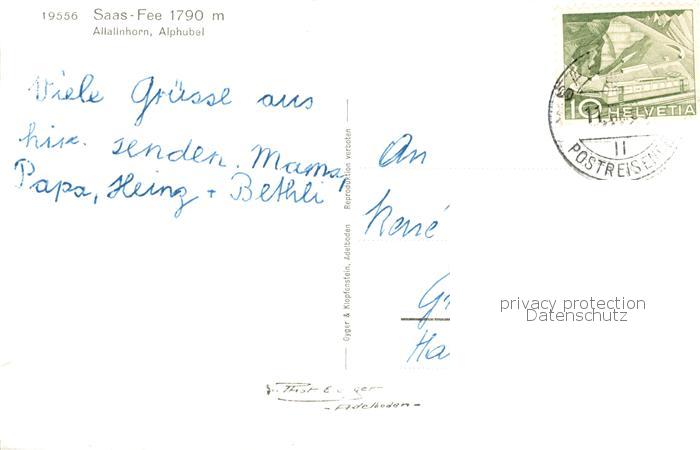 19556 Saas-Fee 1790 m
Allalinhorn, Alphubel
Viele Grüsse aus
hier senden. Mama,
Papa, Heinz + Bethli
Gyger & Klopfenstein, Adelboden Reproduktion verboten
An
René
Ha
10 HELVETIA
II
POSTREISEN
privacy protection
Datenschutz
- Adelboden -